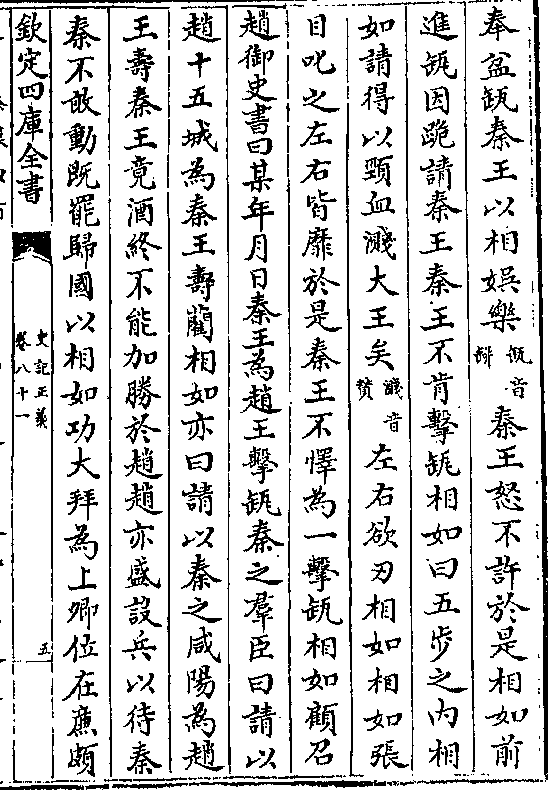 奉盆缻秦王以相娱樂缻音缾秦王怒不許於是相如前
進缻因跪請秦王秦王不肯擊缻相如曰五步之内相
如請得以頸血濺大王矣濺音賛左右欲刃相如相如張
目叱之左右皆靡於是秦王不懌為一擊缻相如顧召
趙御史書曰某年月日秦王為趙王擊缻秦之羣臣曰請以
趙十五城為秦王壽藺相如亦曰請以秦之咸陽為趙
王壽秦王竟酒終不能加勝於趙趙亦盛設兵以待秦
秦不敢動既罷歸國以相如功大拜為上卿位在㢘頗
欽定四庫全書
史記正義
卷八十一
五